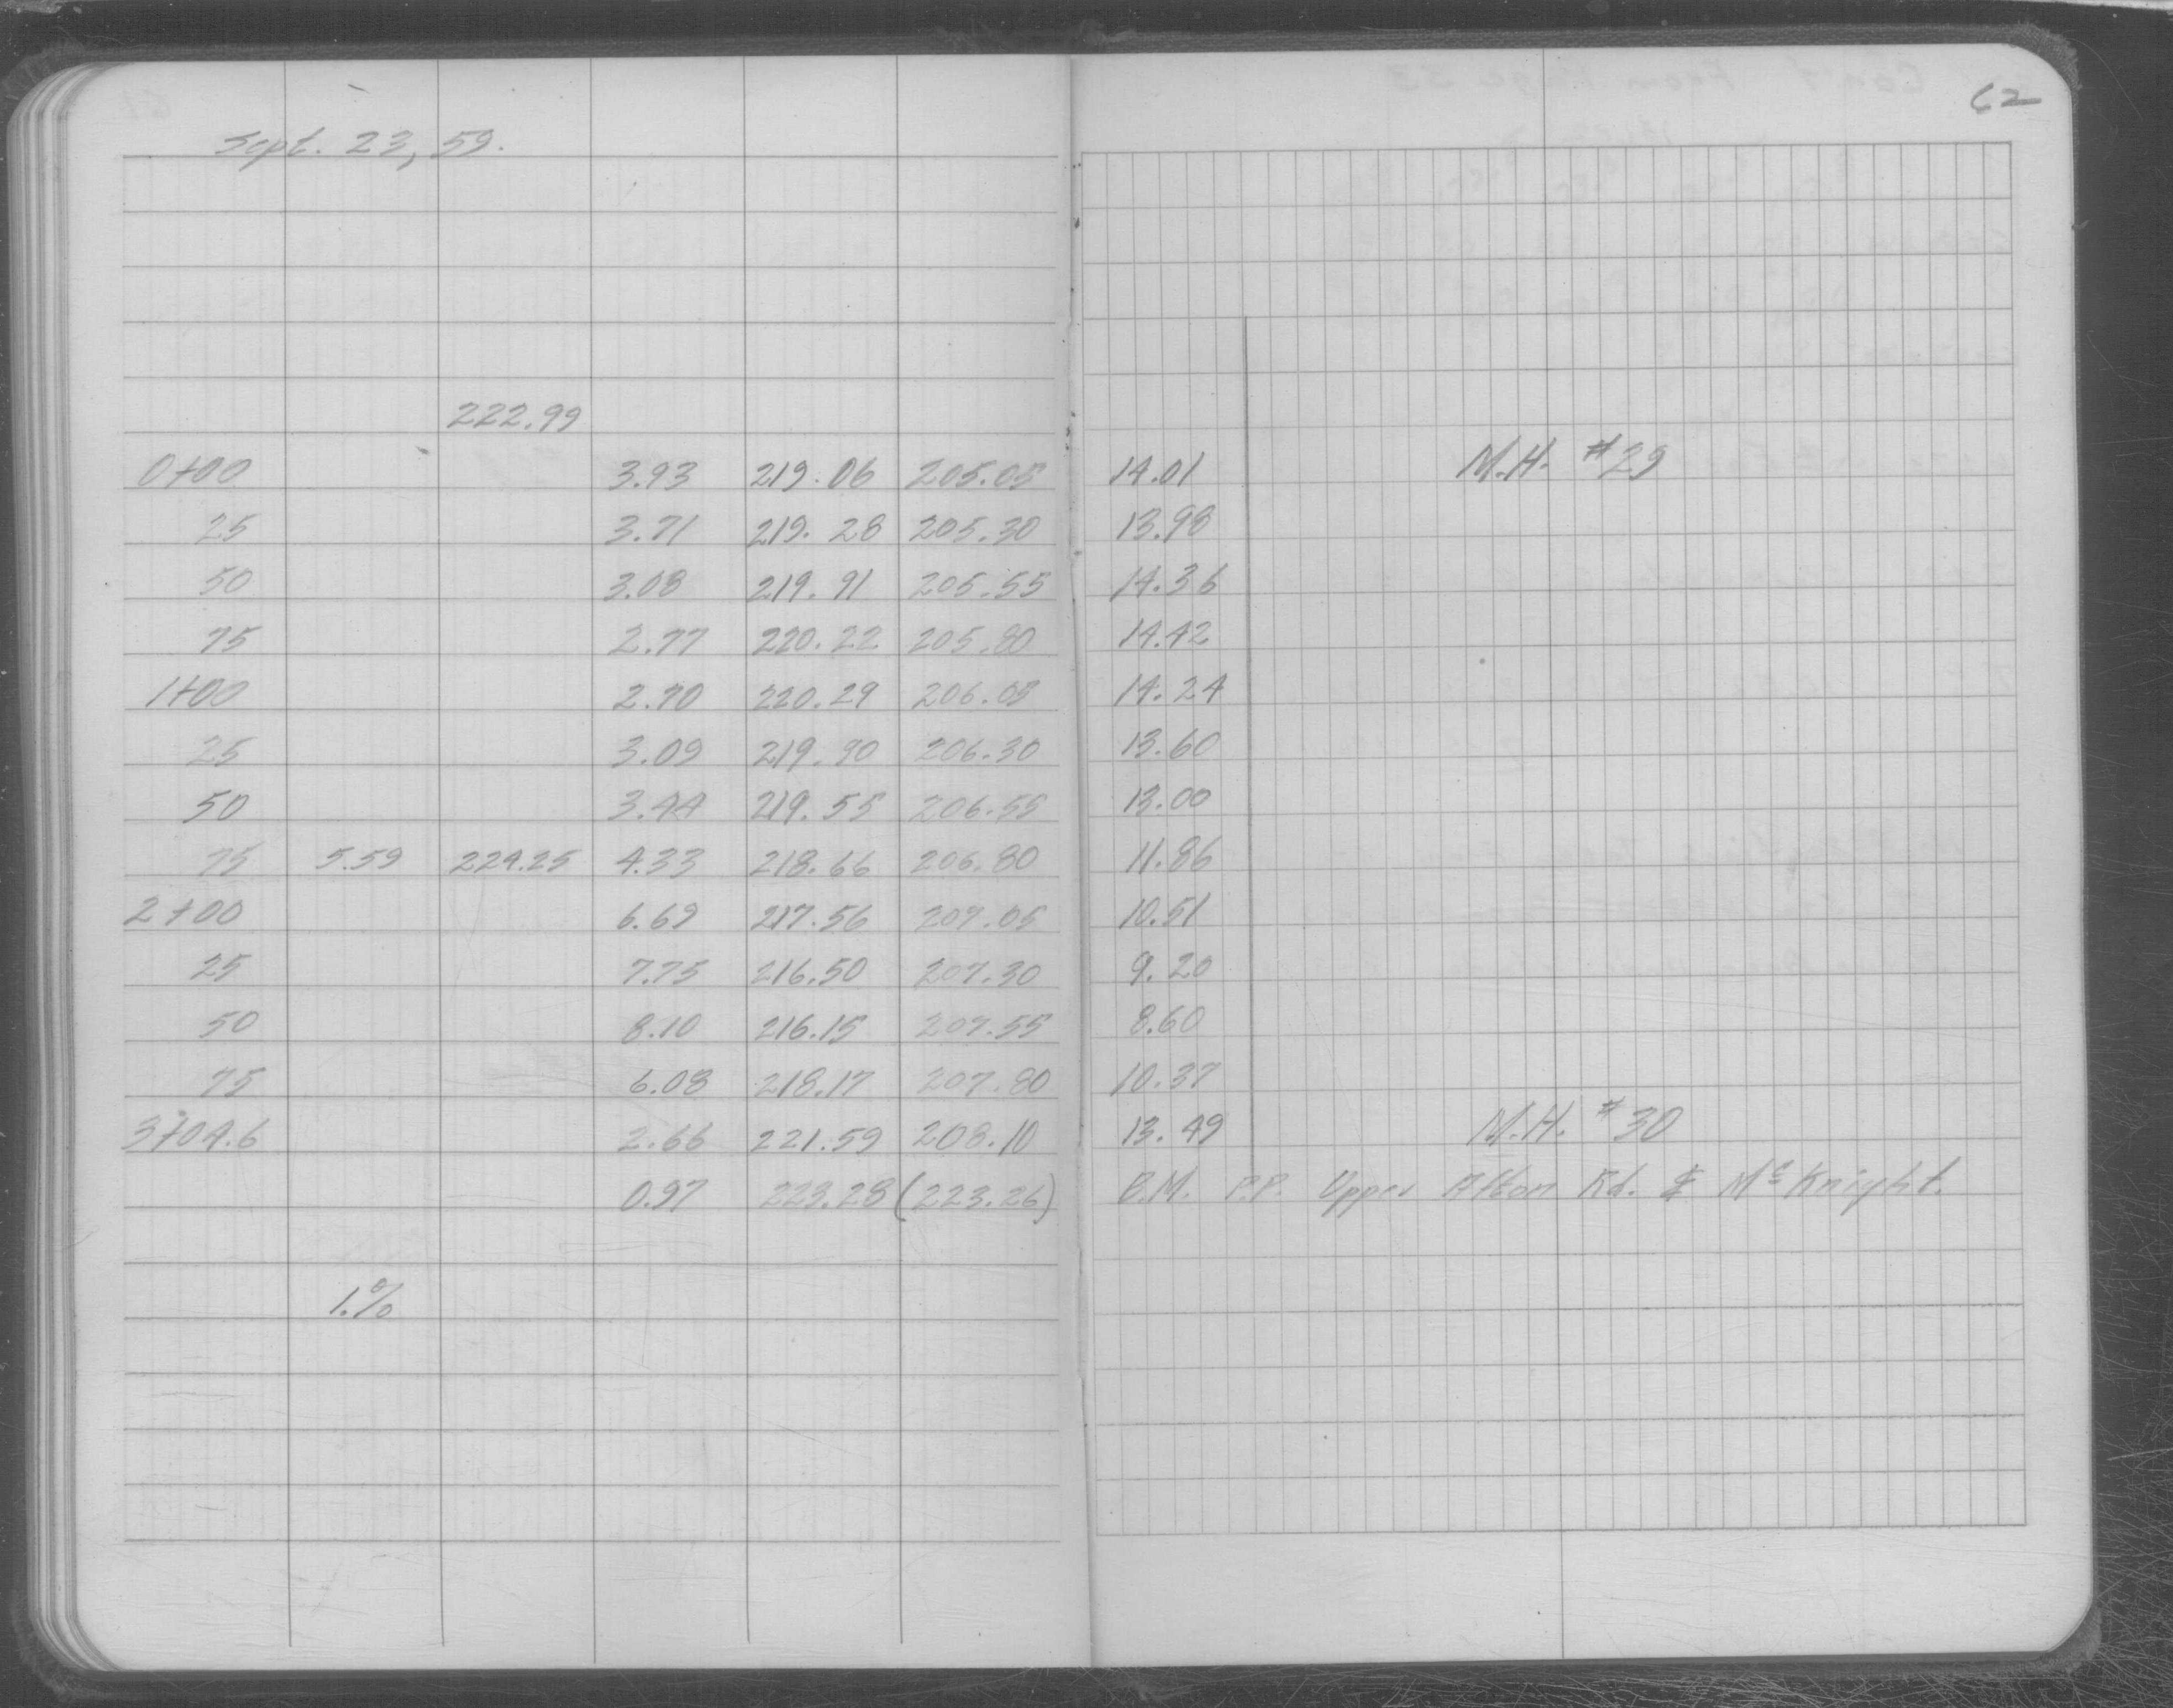 62
Sept. 23, 59.
222.99
0+00 3.93 219.06 205.05 14.01 M.H. #29
25 3.71 219.28 205.30 13.98
50 3.08 219.91 205.55 14.36
75 2.77 220.22 205.80 14.42
1+00 2.70 220.29 206.05 14.24
25 3.09 219.90 206.30 13.60
50 3.44 219.55 206.55 13.00
75 5.59 224.25 4.33 218.66 206.80 11.86
2+00 6.69 217.56 207.05 10.51
25 7.75 216.50 207.30 9.20
50 8.10 216.15 207.55 8.60
75 6.08 218.17 207.80 10.37
3+04.6 2.66 221.59 208.10 13.49 M.H. #30
0.97 223.28 (223.26) B.M. P.P. Upper Afton Rd. & McKnight.
1.%